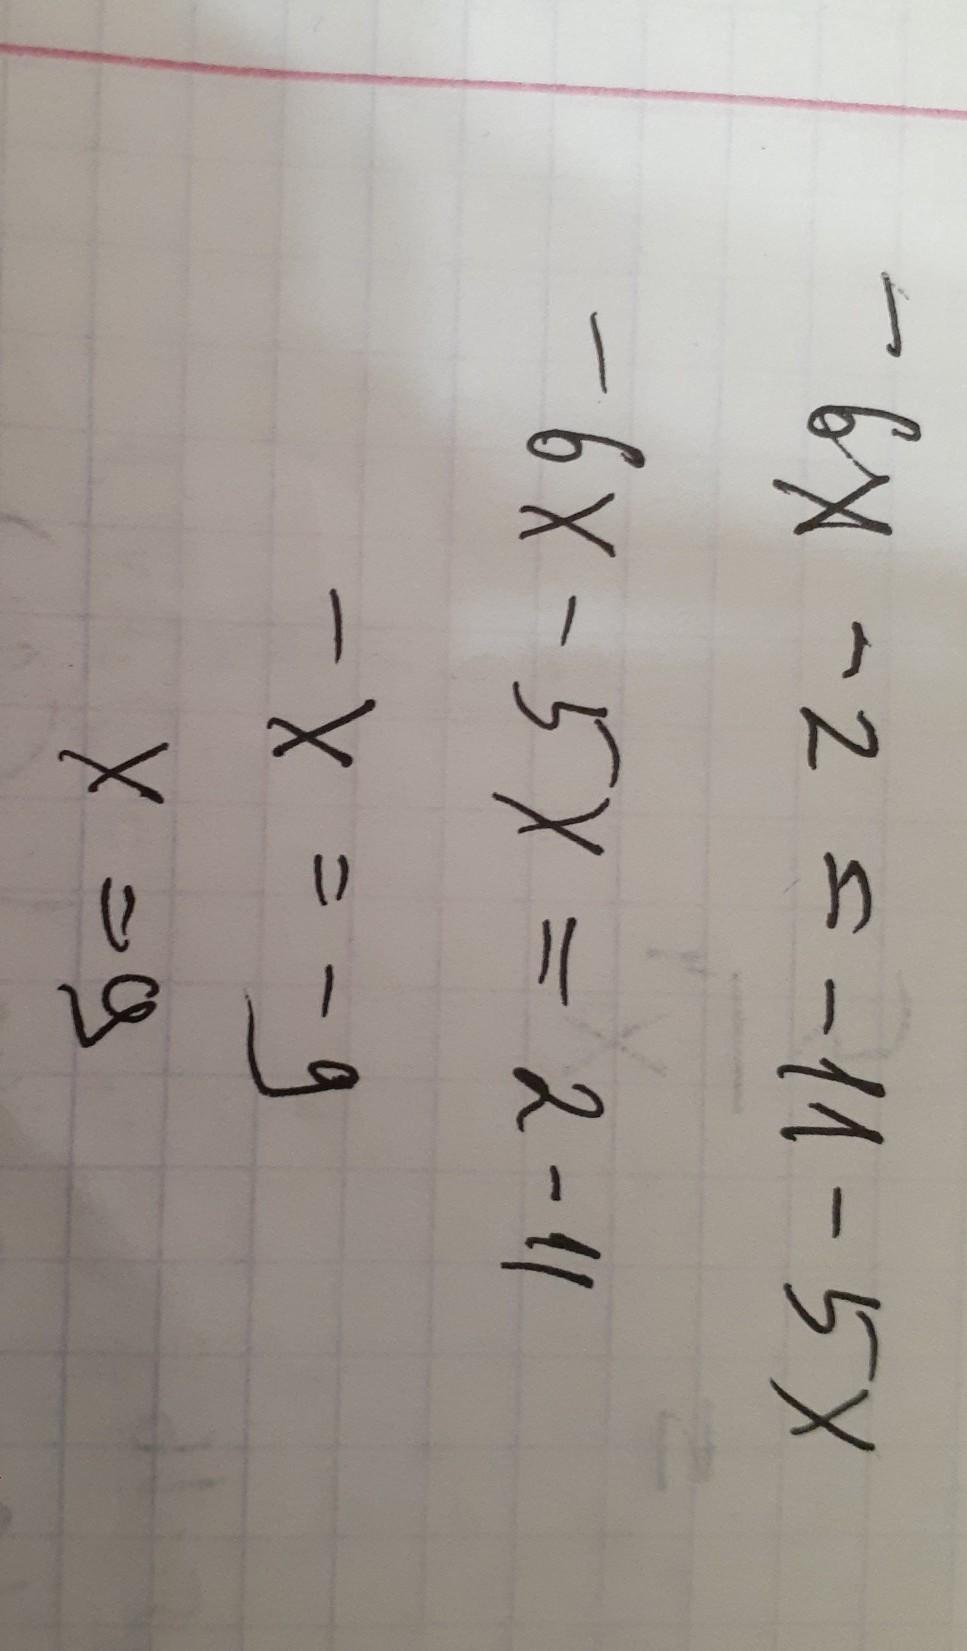 -6x -2 ≤ -11 - 5x
-6x - 5x = 2 - 11
-x = -9
x = 9